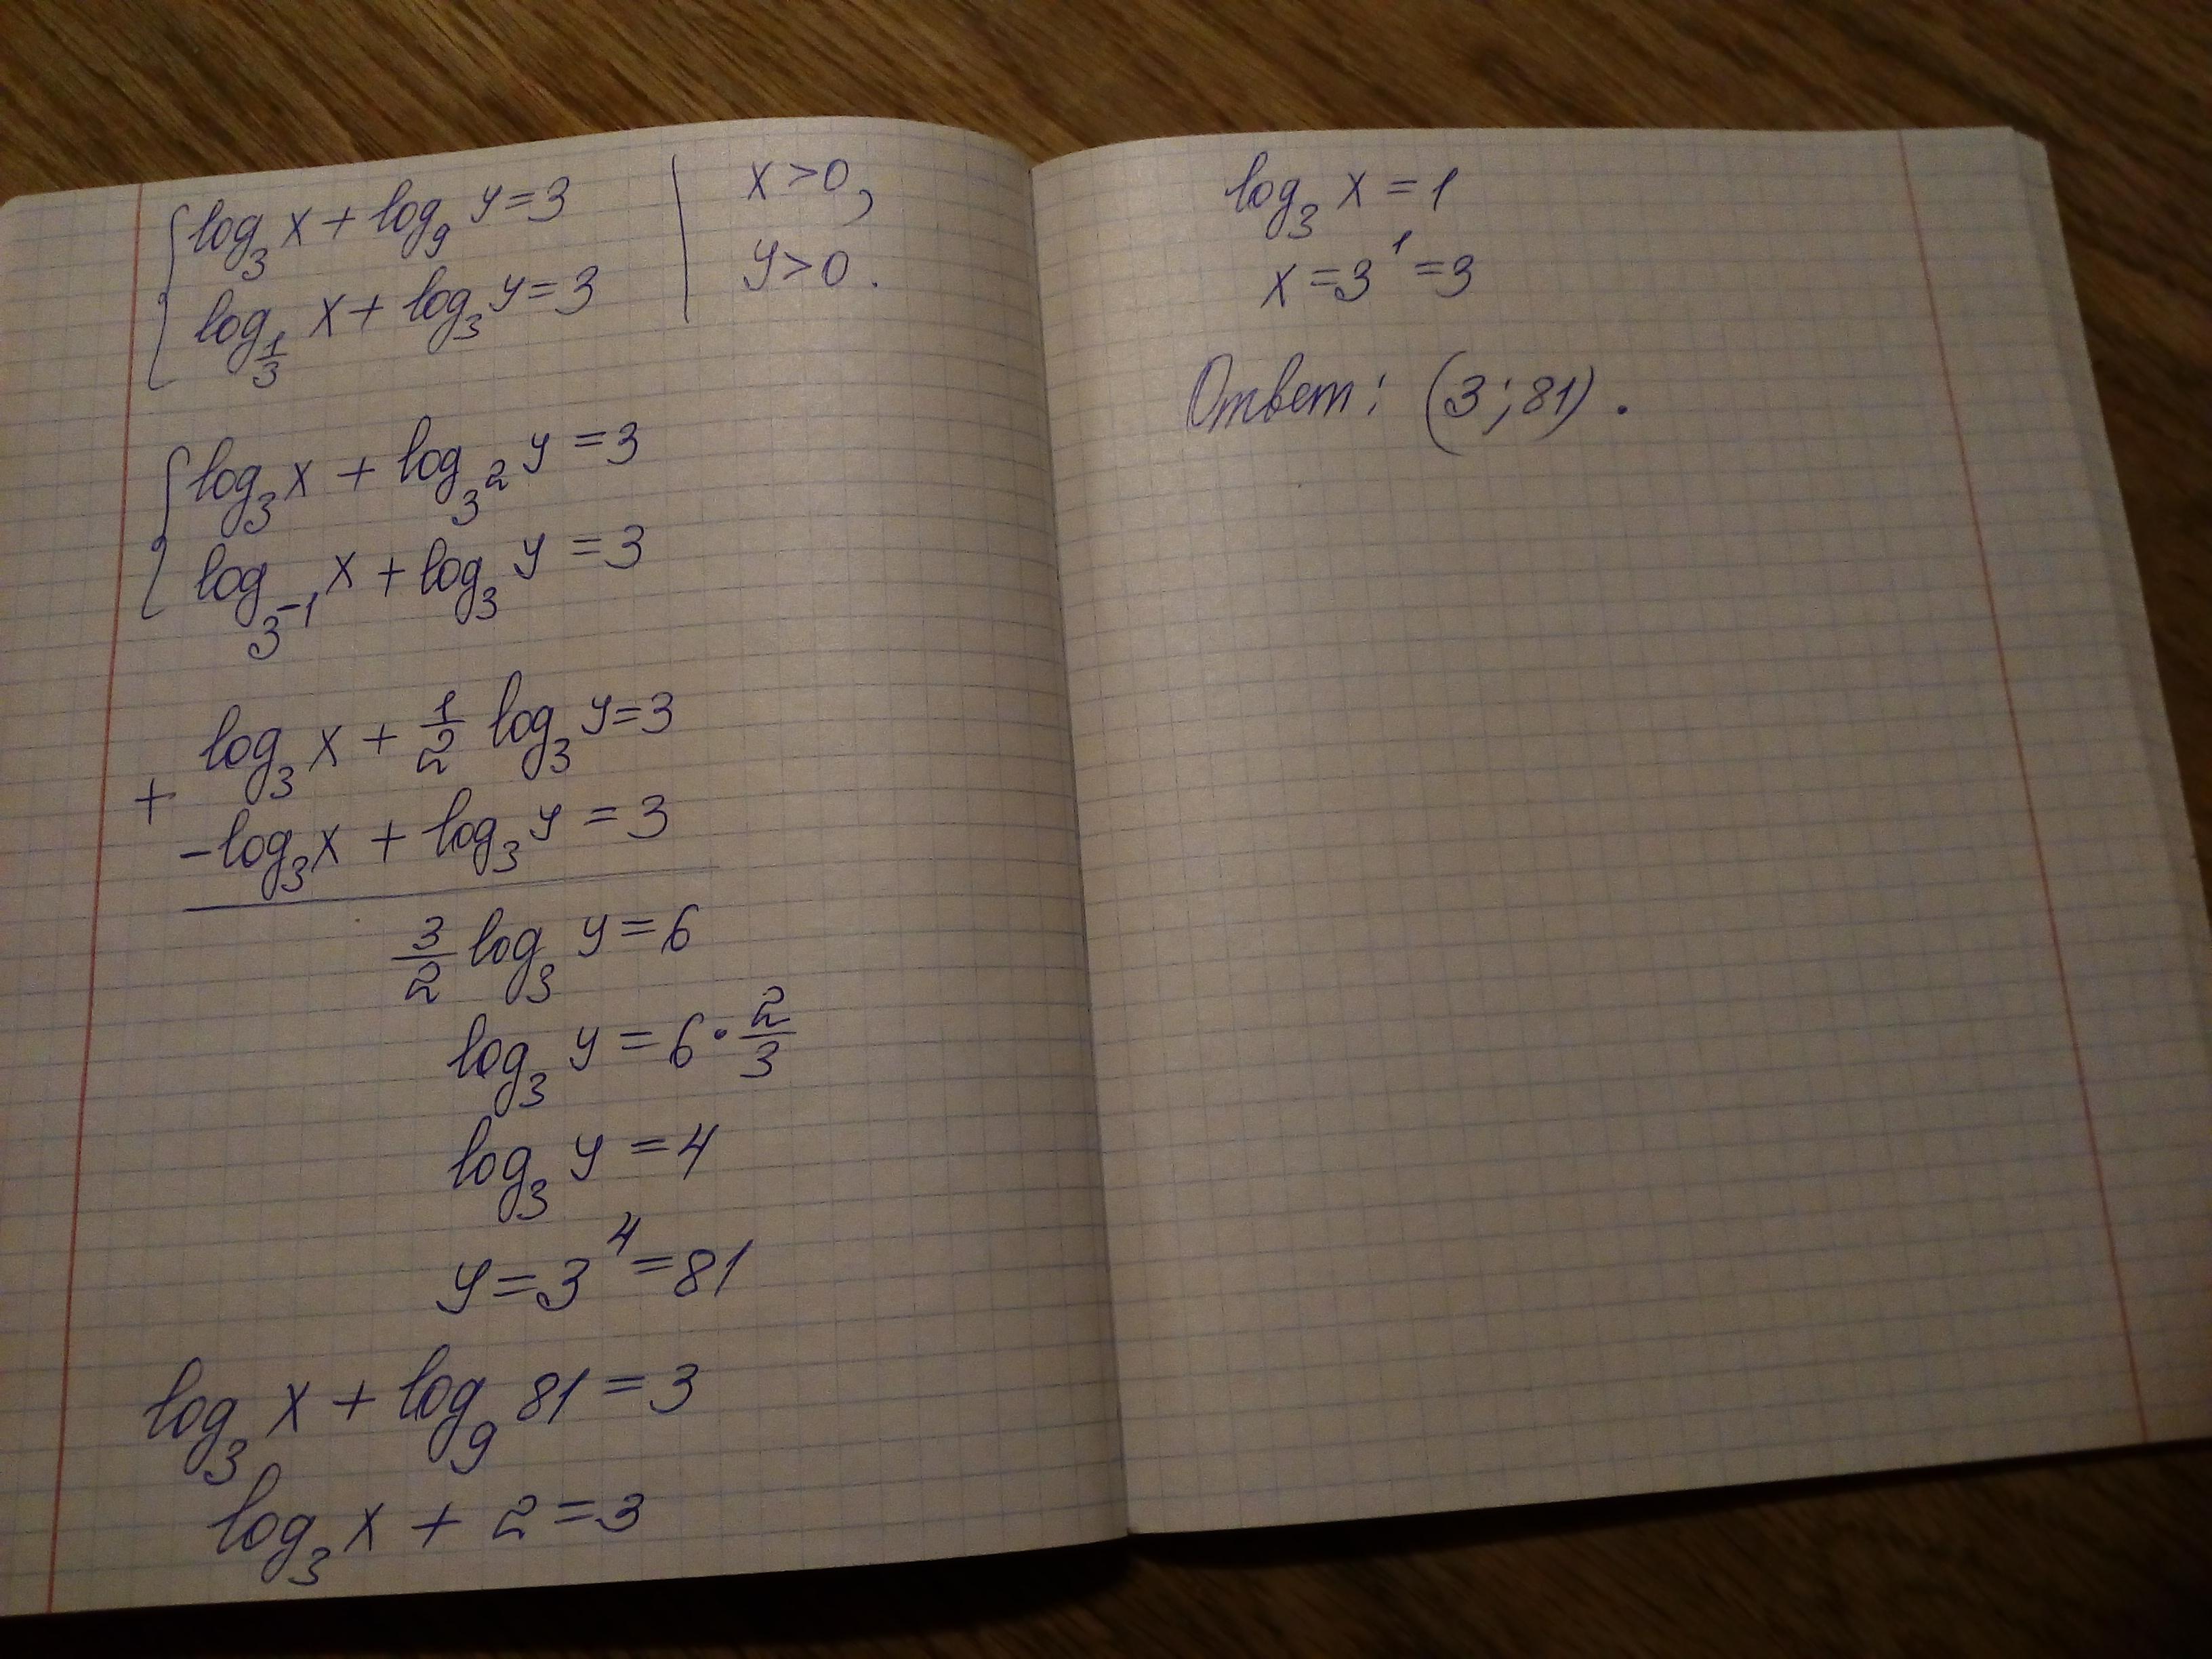 { log₃ x + log₉ y = 3 | x > 0,
{ log_{1/3} x + log₃ y = 3 | y > 0.
{ log₃ x + log_{3²} y = 3
{ log_{3⁻¹} x + log₃ y = 3
log₃ x + 1/2 log₃ y = 3
+
- log₃ x + log₃ y = 3
3/2 log₃ y = 6
log₃ y = 6 · 2/3
log₃ y = 4
y = 3⁴ = 81
log₃ x + log₉ 81 = 3
log₃ x + 2 = 3
log₃ x = 1
x = 3¹ = 3
Ответ: (3; 81).